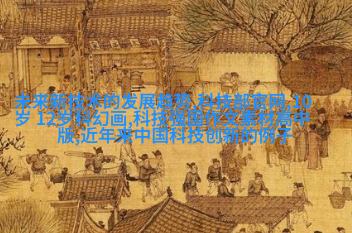 未来新技术的发展趋势,科技部官网,10
岁 12岁科幻画,科技强国作文素材高中
版,近年来中国科技创新的例子